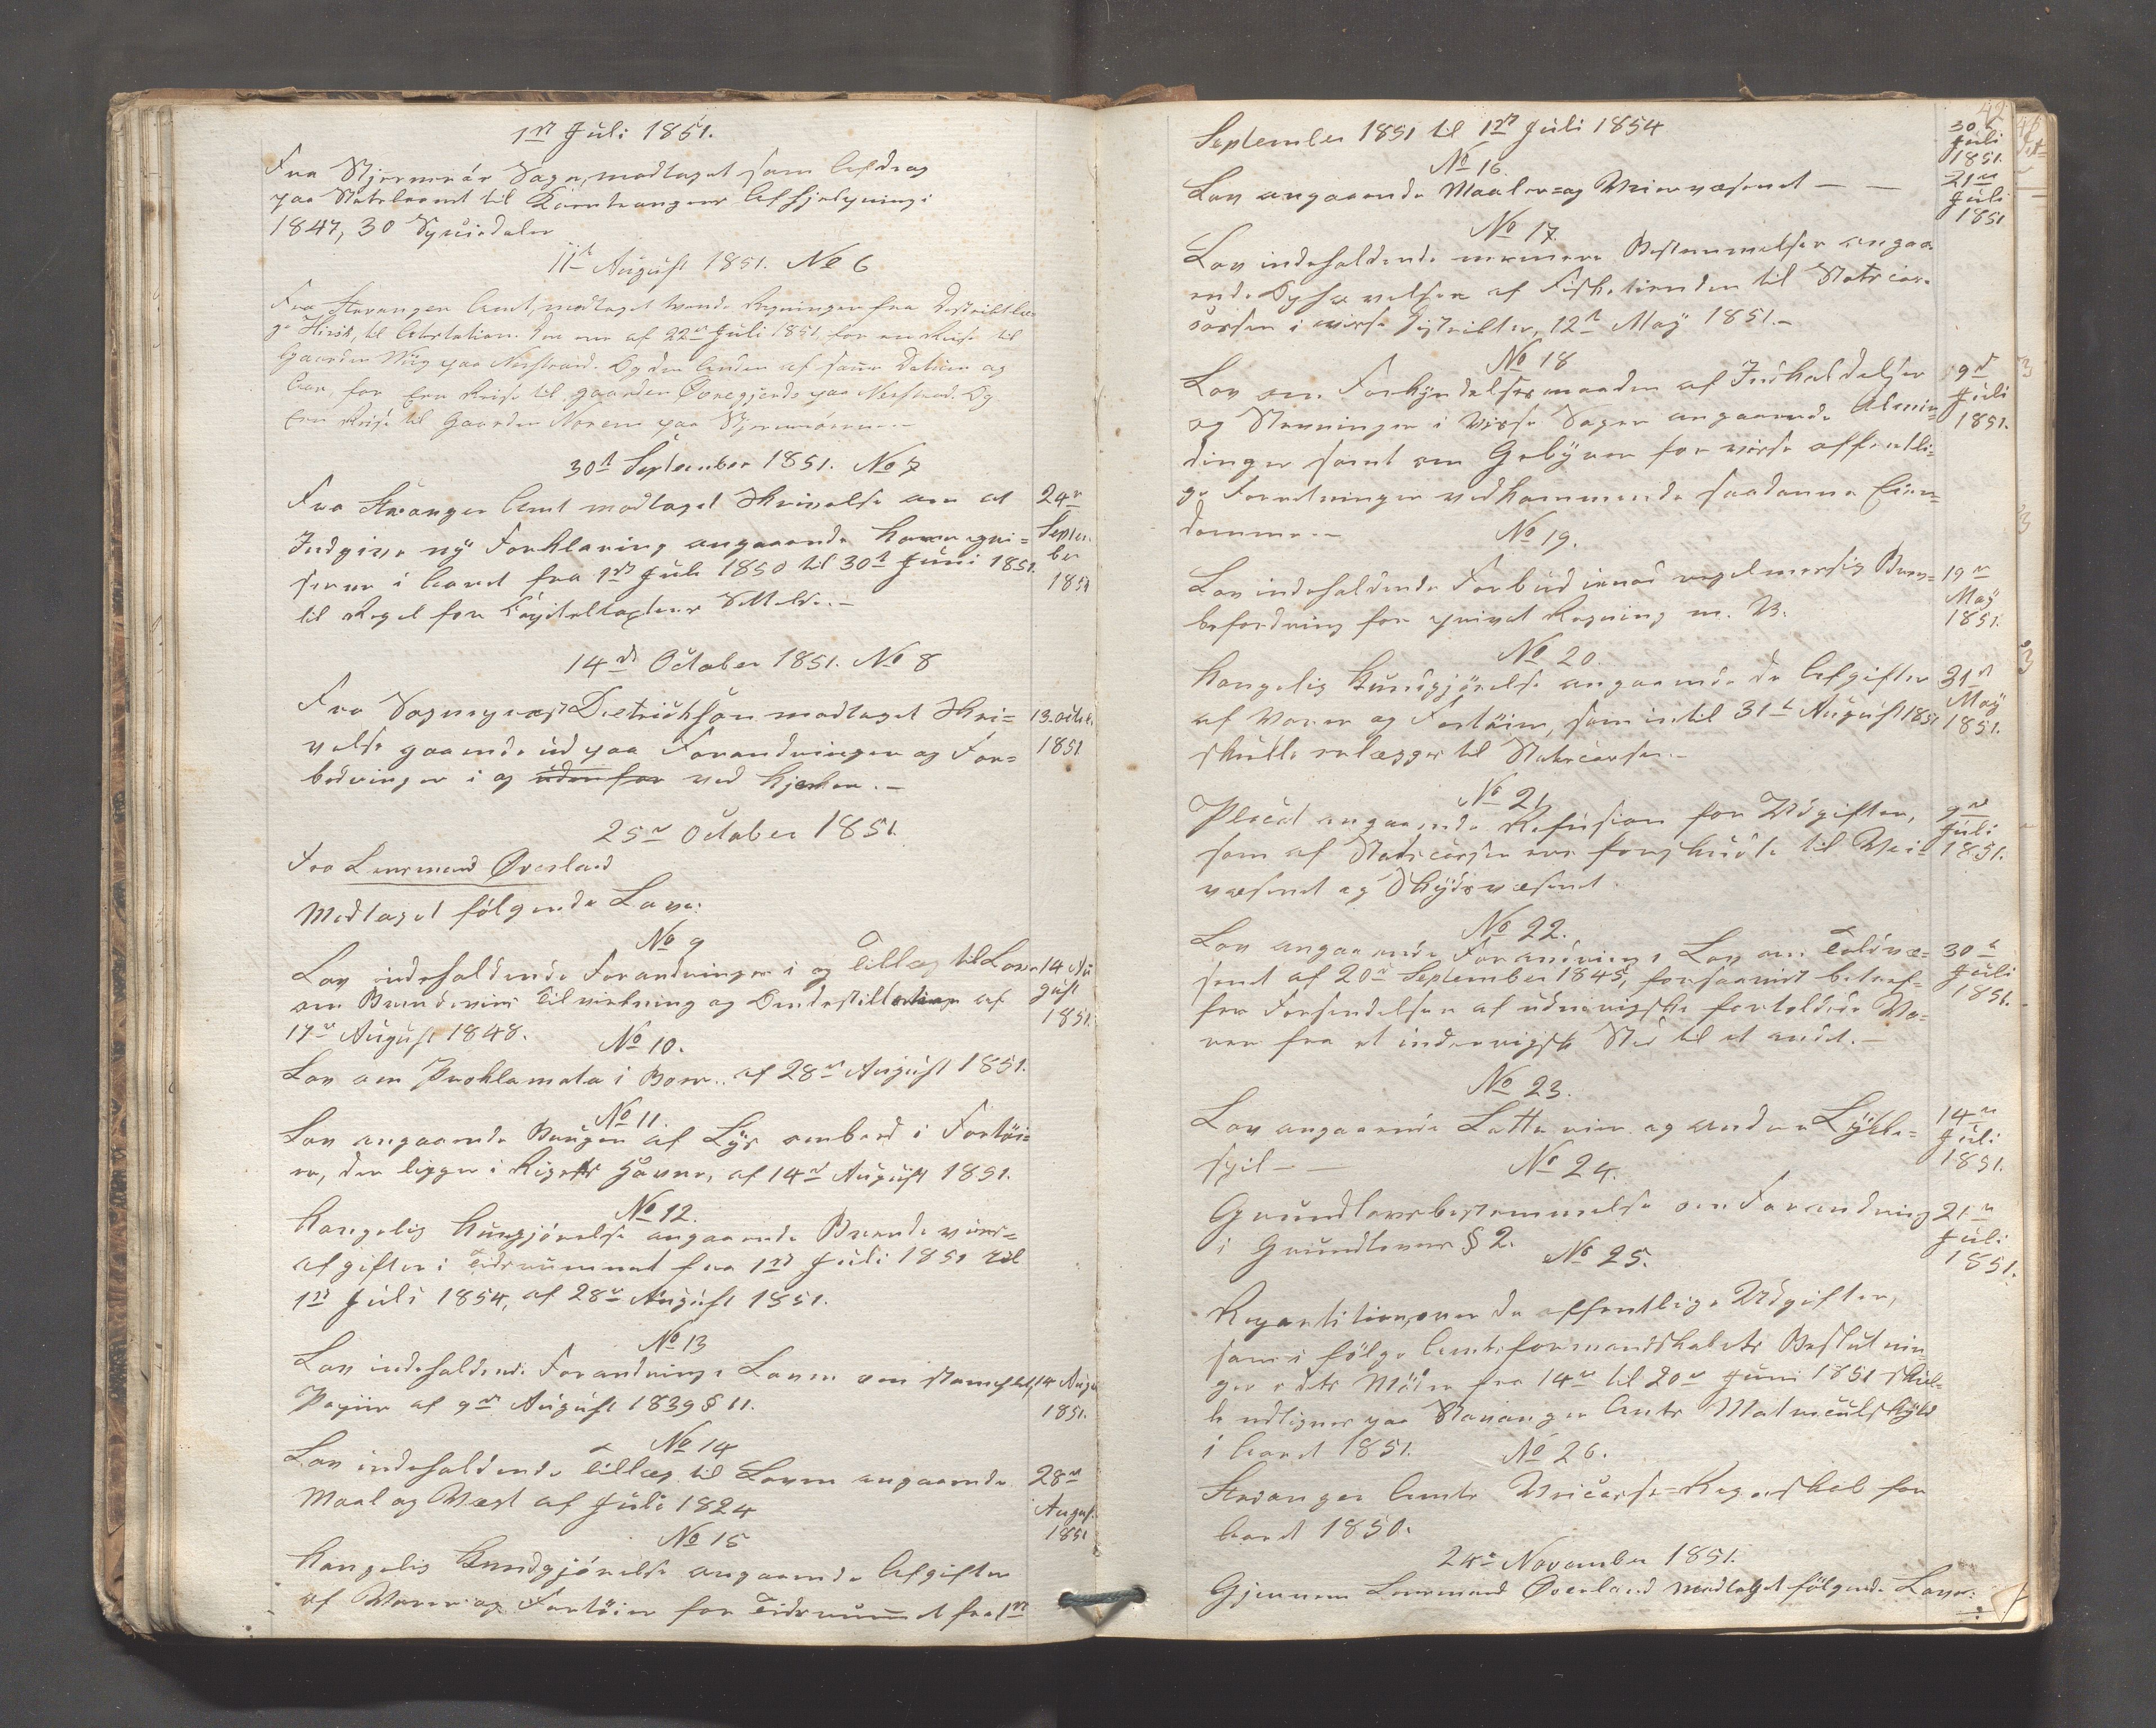 1st Juli 1851.
Fra Stjernerøe Sogn, modtaget som Afdrag
paa Statslaanet til Korntrangens Afhjelpning i
1847, 30 Speciedaler
11te August 1851. No 6
Fra Stavanger Amt, modtaget tvende Regninger fra Destriktlæ-
ge Hirsh, til Attestation. Den ene af 22de Juli 1851, for en Reise til
Gaarden Wiig paa Nerstrand. Og den Anden af samme Datum og
Aar, for Een Reise til gaarden Øvregjerde paa Nerstrand. Og
Een Reise til Gaarden Norem paa Stjernerøerne.-
30te September 1851. No 7
Fra Stavanger Amt modtaget Skrivelse om at
Indgive ny Forklaring angaaende Kornpri=
serne i Aaret fra 1st Juli 1850 til 30te Juni 1851.
til Regel for Capiteltaxtens Settelse.-
24de
Septem-
ber
1851
14de October 1851. No 8
Fra Sogneprest Dietrichson modtaget Skri=
velse gaaende ud paa Forandringer og For=
bedringer i og udenfor ved Kjerken.-
13. octob.
1851
25de October 1851.
Fra Lensmand Øverland
Modtaget følgende Love:
No 9
Lov indeholdende Forandringer i og Tillæg til Loven
om Brændeviins Tilvirkning og Omdestillering af
17de August 1848.
14 Au
gust
1851.
No 10.
Lov om Proklamata i Boer.. af 28de August 1851.
No 11.
Lov angaaende Brugen af Lys ombord i Fartøi=
er, der ligger i Rigets Havne, af 14de August 1851.
No 12.
Kongelig Kungjørelse angaaende Brændeviins=
afgifter i Tidsrummet fra 1st Juli 1851 til
1st Juli 1854, af 28de August 1851.
No 13
Lov indeholdende Forandring i Loven om stemplet
Papiir af 9de August 1839 § 11.
14 Augu
1851.
No 14
Lov indeholdende Tillæg til Loven angaaende
Maal og Vægt af Juli 1824
28de
August
1851
No 15
Kongelig Kundgjørelse angaaende Afgifter
af Varer og Fartøier for Tidsrummet fra 1st
42
September 1851 til 1st Juli 1854
30te
Juli
1851.
No 16
Lov angaaende Maaler=og Veiervæsenet — —
21de
Juli
1851
No 17.
Lov indeholdende nærmere Bestemmelser angaa-
ende Ophævelsen af Fisketienden til Statscas-
sen i visse Distrikter, 12te May 1851.-
No 18
Lov om Forkyndelsesmaaden af Indkaldelser
og Stevninger i Visse Sager angaaende Almin=
dinger samt om Gebyrer for visse offentli=
ge Forretninger vedkommende saadanne Eien=
domme.-
9de
Juli
1851.
No 19.
Lov indeholdende Forbud imod regelmessig Brev=
befordring for privat Regning m. V.
19de
May
1851.
No 20.
Kongelig Kundgjørelse angaaende de Afgifter
af Varer og Fartøier, som intil 31te August 1851
skulle erlægges til Statscassen.-
31st
May
1851.
No 21.
Placat angaaende Refusion for Udgifter,
som af Statscassen ere forskudte til Vei=
væsenet og Skydsvæsenet.
9de
Juli
1851.
No 22.
Lov angaaende Forandring i Lov om Toldvæ=
senet af 20de September 1845, forsaavidt betref=
fer Forsendelsen af udenrigske fortoldede Va=
rer fra et indenrigsk Sted til et andet.—
30te
Juli
1851.
No 23.
Lov angaaende Lotterier og andre Lykke=
spil — —
14de
Juli
1851.
No 24.
Grundlovsbestemmelse om Forandring
i Grundlovens § 2.
21de
Juli
1851.
No 25.
Repartition over de offentlige Udgifter,
som i følge Amtsformandskabets Beslutnin
ger i dets Møder fra 14de til 20de Juni 1851 skul=
le udlignes paa Stavanger Amts Matriculskyld
i Aaret 1851.
No 26.
Stavanger Amts Veicasse=Regnskab for
Aaret 1850.
24de November 1851.
Gjennem Lensmand Øverland modtaget følgende Love: